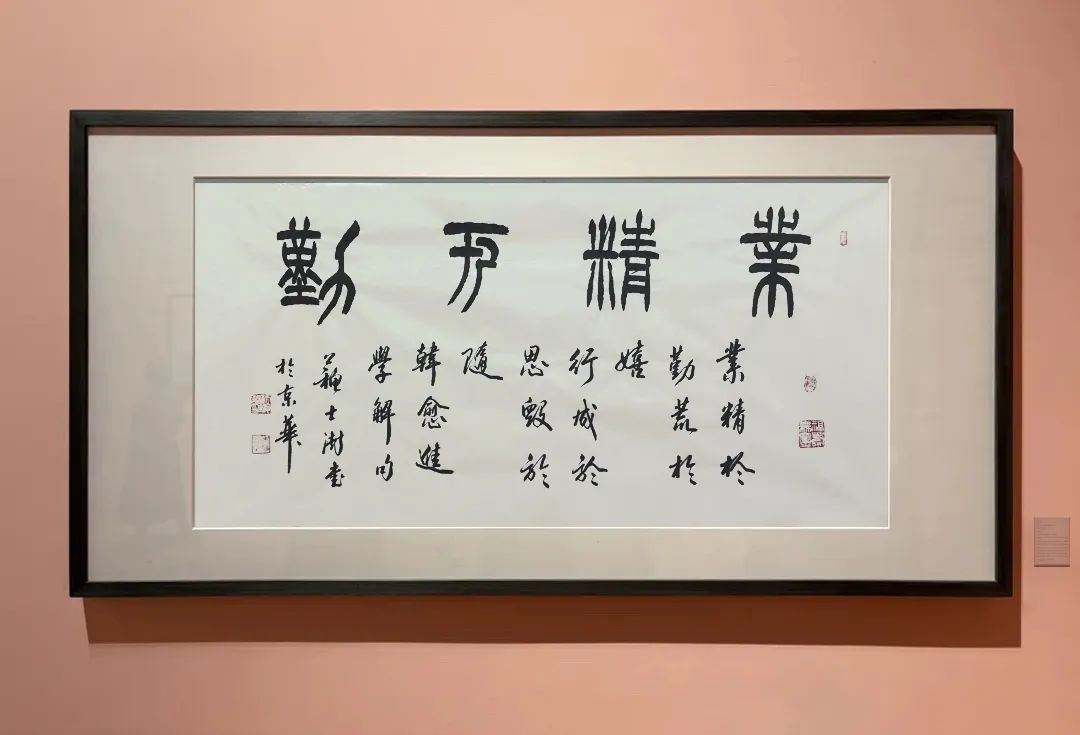 業精于勤
業精於
勤荒於
嬉
行成於
思毀於
隨
韓愈進
學解句
蘇士澍書
於京華